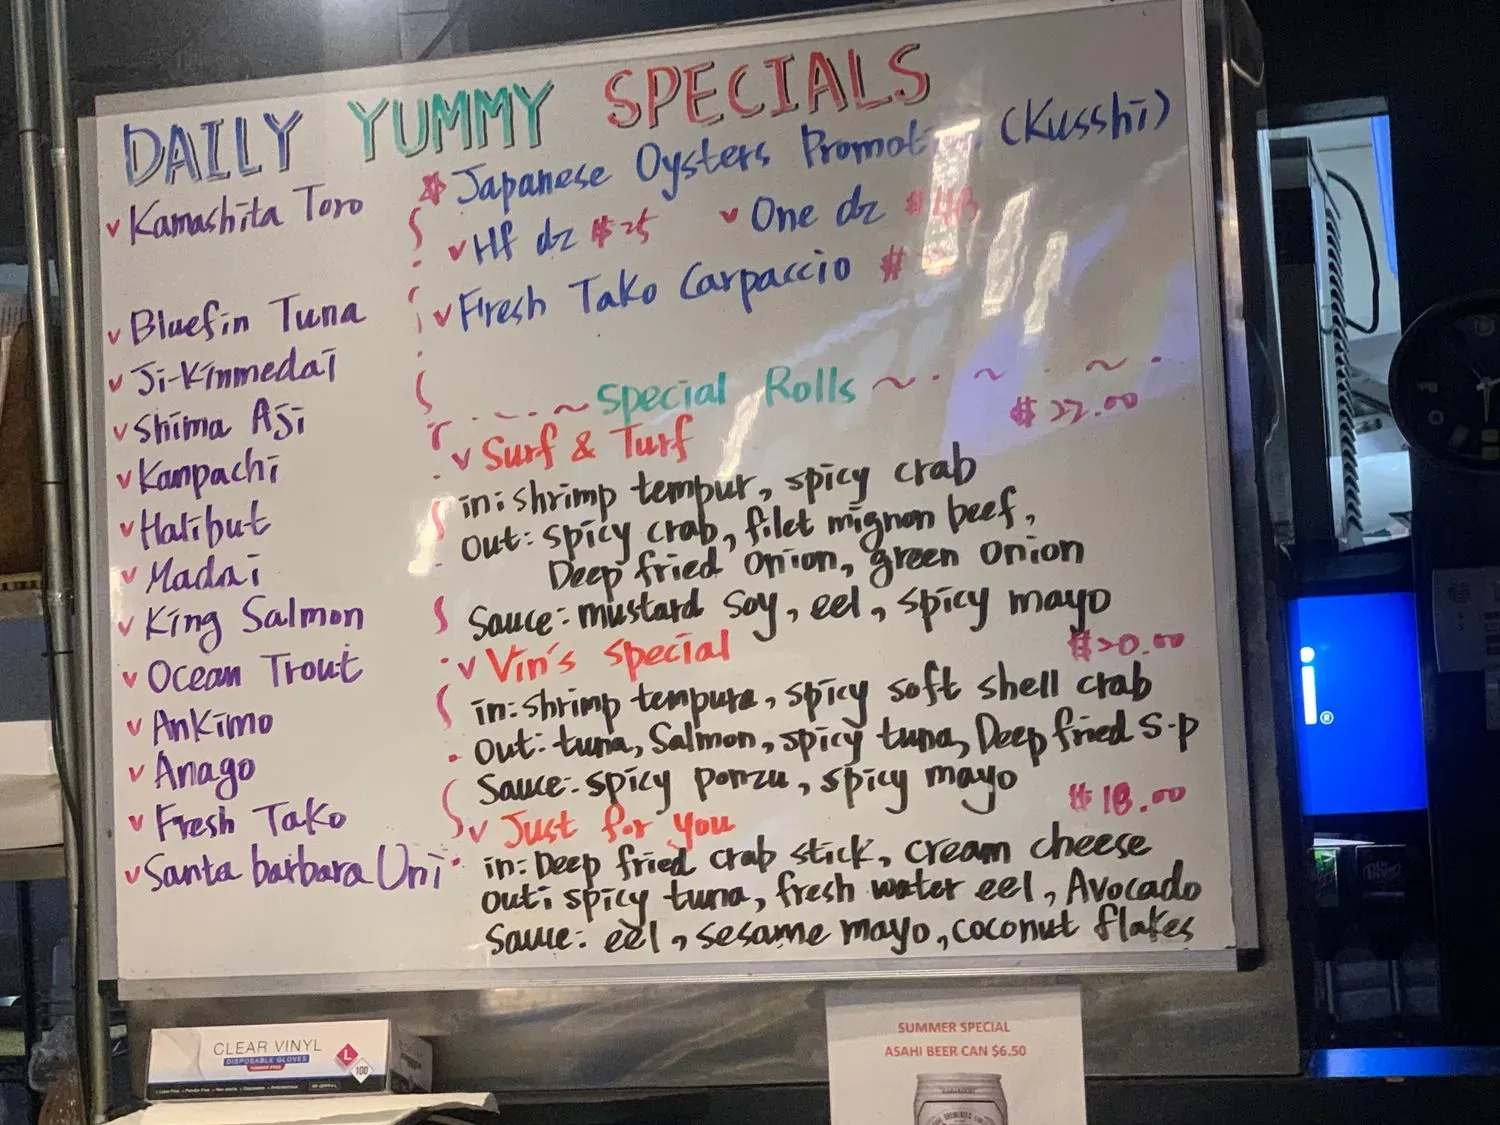 DAILY YUMMY SPECIALS
Kamashita Toro
Bluefin Tuna
Ji-Kinmedai
Shima Aji
Kanpachi
Halibut
Madai
King Salmon
Ocean Trout
Ankimo
Anago
Fresh Tako
Santa barbara Uni
Japanese Oysters Promot (Kusshi)
Hf dz $25 One dz $48
Fresh Tako Carpaccio $
Special Rolls
Surf & Turf $22.00
in: shrimp tempur, spicy crab
Out: spicy crab, filet mignon beef,
Deep fried onion, green onion
Sauce: mustard soy, eel, spicy mayo
Vin's special $20.00
in: shrimp tempura, spicy soft shell crab
Out: tuna, Salmon, spicy tuna, Deep fried s.p
Sauce: spicy ponzu, spicy mayo
Just for you $18.00
in: Deep fried crab stick, cream cheese
Out: spicy tuna, fresh water eel, Avocado
Sauce: eel, sesame mayo, coconut flakes
CLEAR VINYL
DISPOSABLE GLOVES
POWDER FREE
L
100
SUMMER SPECIAL
ASAHI BEER CAN $6.50